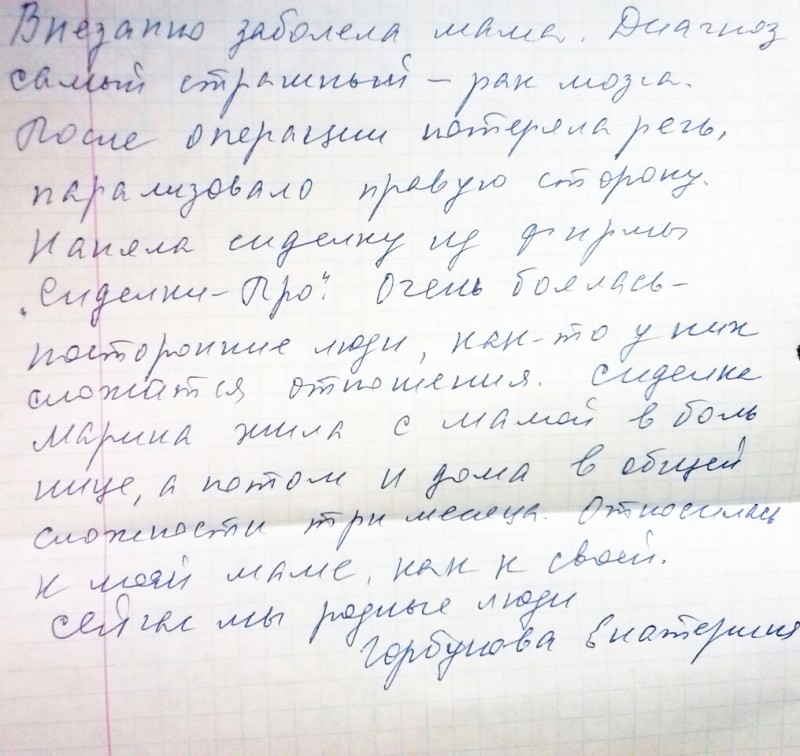 Внезапно заболела мама. Диагноз
самый страшный – рак мозга.
После операции потеряла речь,
парализовало правую сторону.
Наняла сиделку из фирмы
„Сиделки-Про“. Очень боялась-
посторонние люди, как-то у них
сложатся отношения. Сиделка
Марина жила с мамой в боль
нице, а потом и дома в общей
сложности три месеца. Относилась
к моей маме, как к своей.
Сейчас мы родные люди
Горбунова Екатерина